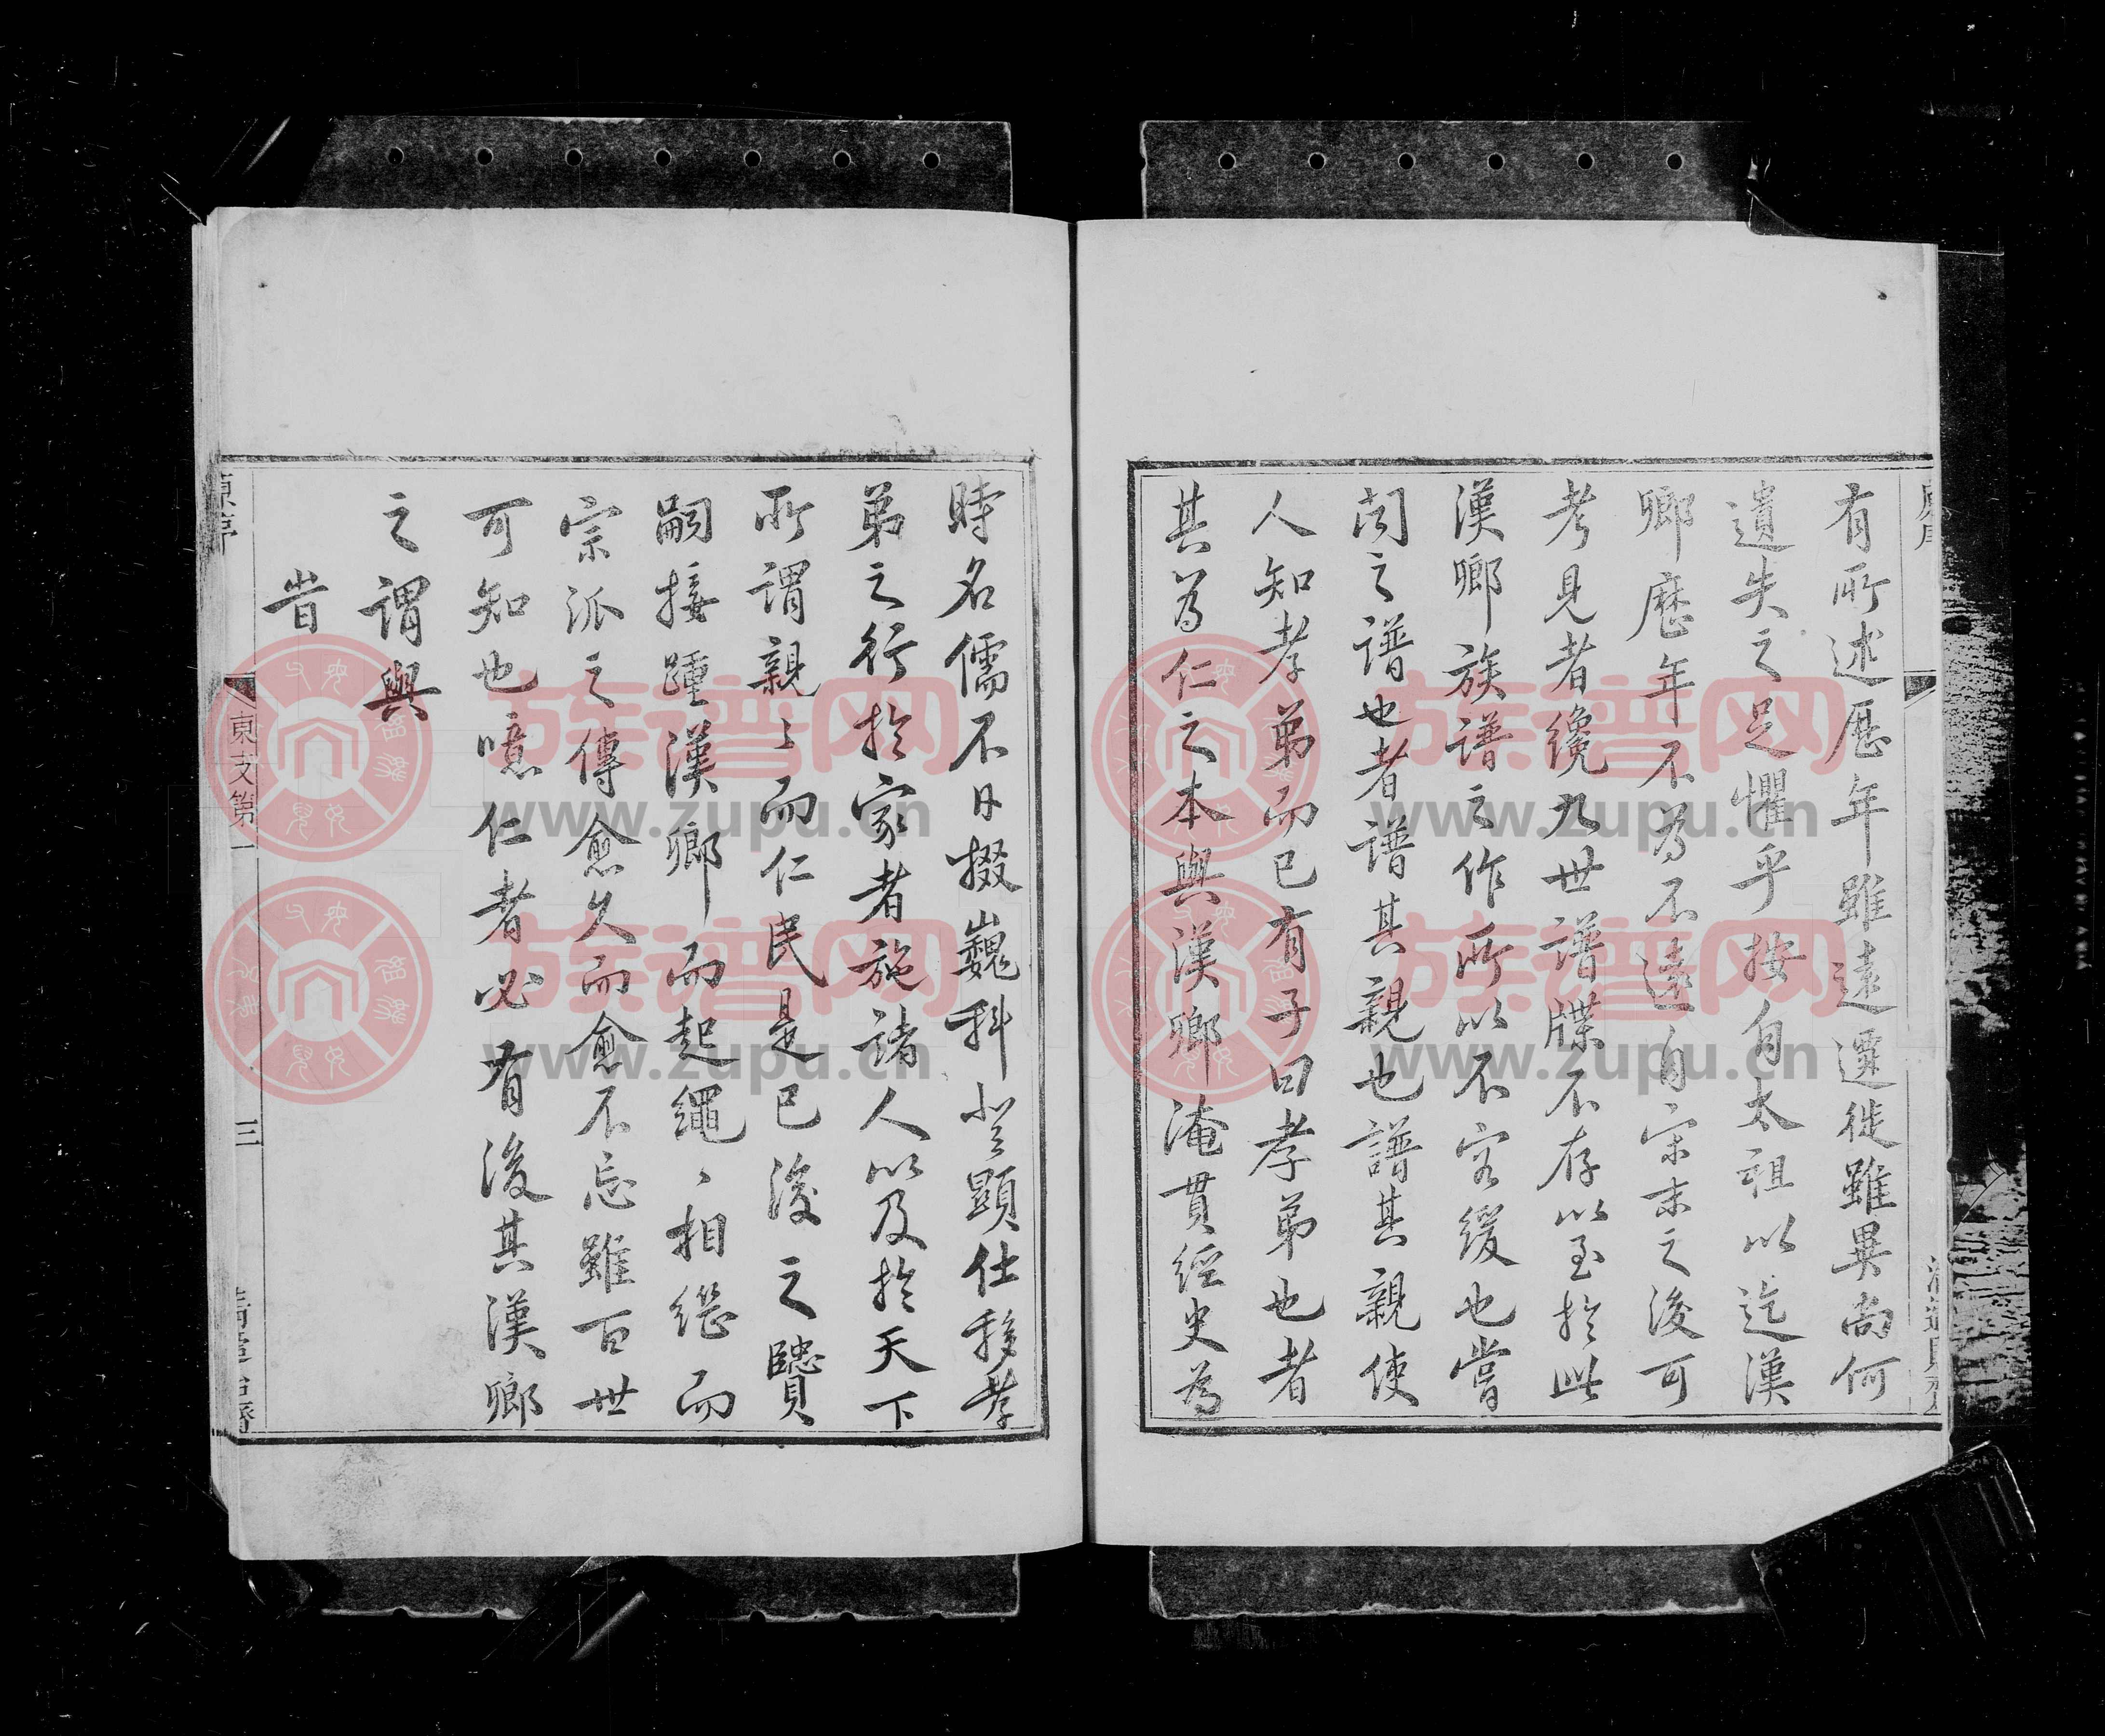 有所述歷年雖遠遷徙雖異尚何
遺失之足懼乎按自太祖以迄漢
鄉歷年不為不遠自宋末之後可
考見者纔九世譜牒不存以至於此
漢鄉族譜之作所以不容緩也嘗
聞之譜也者譜其親也譜其親使
人知孝弟而已有子曰孝弟也者
其為仁之本與漢鄉淹貫經史為
時名儒不日掇巍科登顯仕移孝
弟之行於家者施諸人以及於天下
所謂親〻而仁民是已後之賢
嗣接踵漢鄉而起繩〻相繼而
宗派之傳愈久而愈不忘雖百世
可知也噫仁者必有後其漢鄉
之謂與
旹
原序
東支第一
三
族谱网
www.zupu.cn
族谱网
www.zupu.cn
族谱网
www.zupu.cn
族谱网
www.zupu.cn